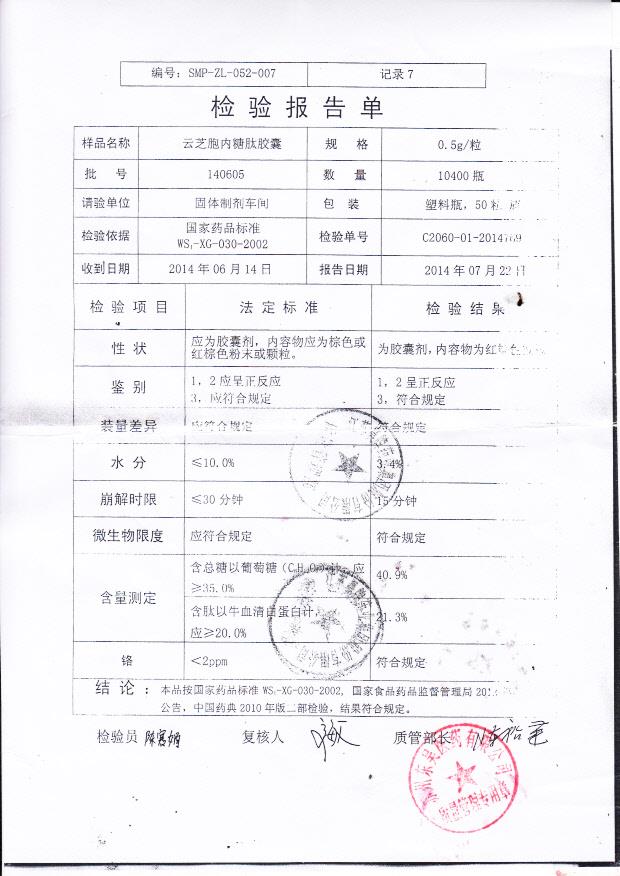 编号：SMP-ZL-052-007 记录7
检验报告单
样品名称 云芝胞内糖肽胶囊 规格 0.5g/粒
批号 140605 数量 10400瓶
请验单位 固体制剂车间 包装 塑料瓶，50粒
检验依据 国家药品标准 WS₃-XG-030-2002 检验单号 C2060-01-2014
收到日期 2014年06月14日 报告日期 2014年07月22日
检验项目 法定标准 检验结果
性状 应为胶囊剂，内容物应为棕色或 为胶囊剂，内容物为红
红棕色粉末或颗粒。
鉴别 1，2应呈正反应 1，2呈正反应
3，应符合规定 3，符合规定
装量差异 应符合规定 符合规定
水分 ≤10.0% 3.4%
崩解时限 ≤30分钟 15分钟
微生物限度 应符合规定 符合规定
含量测定 含总糖以葡萄糖 计，应 40.9%
≥35.0%
含肽以牛血清白蛋白计， 21.3%
应≥20.0%
铬 <2ppm 符合规定
结论：本品按国家药品标准WS₃-XG-030-2002，国家食品药品监督管理局
公告，中国药典2010年版二部检验，结果符合规定。
检验员 复核人 质管部长